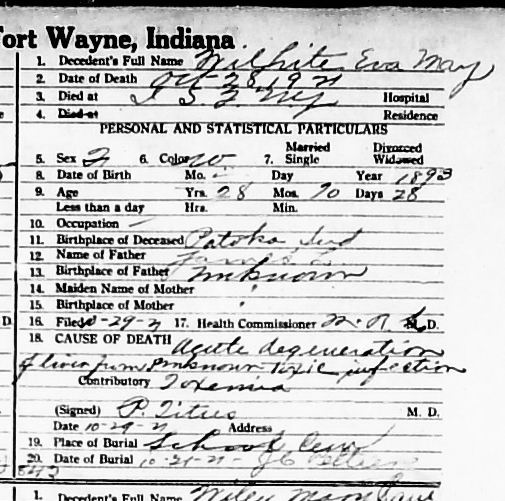 Fort Wayne, Indiana
1. Decedent's Full Name Wilhite Eva May
2. Date of Death Oct-28, 1921
3. Died at I S F M Hospital
4. Died at Residence
PERSONAL AND STATISTICAL PARTICULARS
Married Divorced
5. Sex F 6. Color W 7. Single Widowed
8. Date of Birth Mo. Day Year 1893
9. Age Yrs. 28 Mos. 10 Days 28
Less than a day Hrs. Min.
10. Occupation —
11. Birthplace of Deceased Patoka Ind
12. Name of Father James
13. Birthplace of Father Unknown
14. Maiden Name of Mother "
15. Birthplace of Mother "
16. Filed 10-29-21 17. Health Commissioner M. D.
18. CAUSE OF DEATH Acute degeneration
of liver from unknown toxic infection
Contributory Toxemia
(Signed) P. Titus M. D.
Date 10-29-21 Address
19. Place of Burial School Cem
20. Date of Burial
1. Decedent's Full Name Wiley